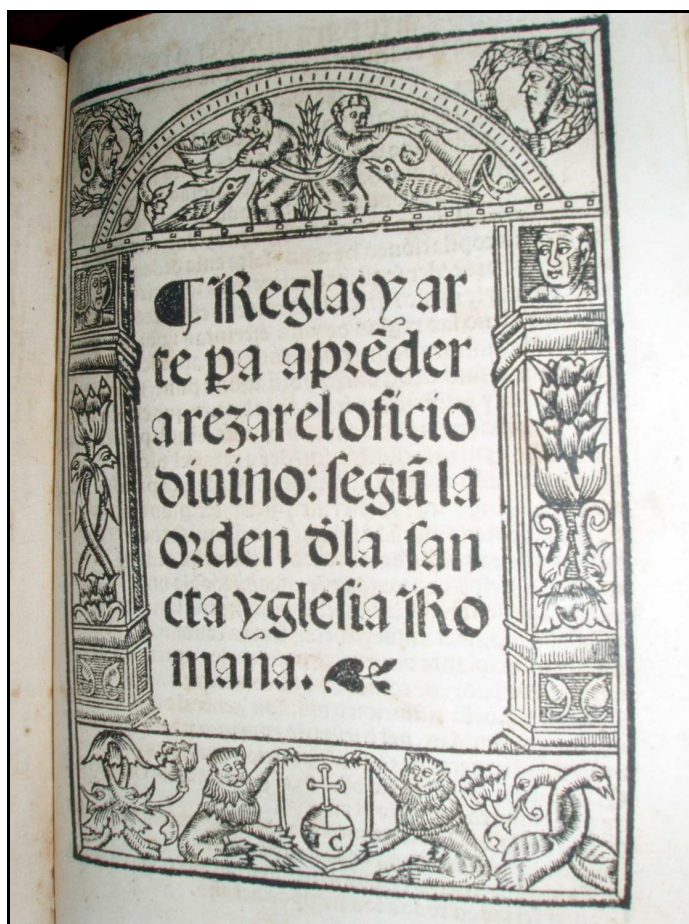 ¶ Reglas y ar
te p̱a aprẽder
a rezar el oficio
diuino: segũ la
orden d̃la san
cta yglesia Ro
mana. ❧
I C